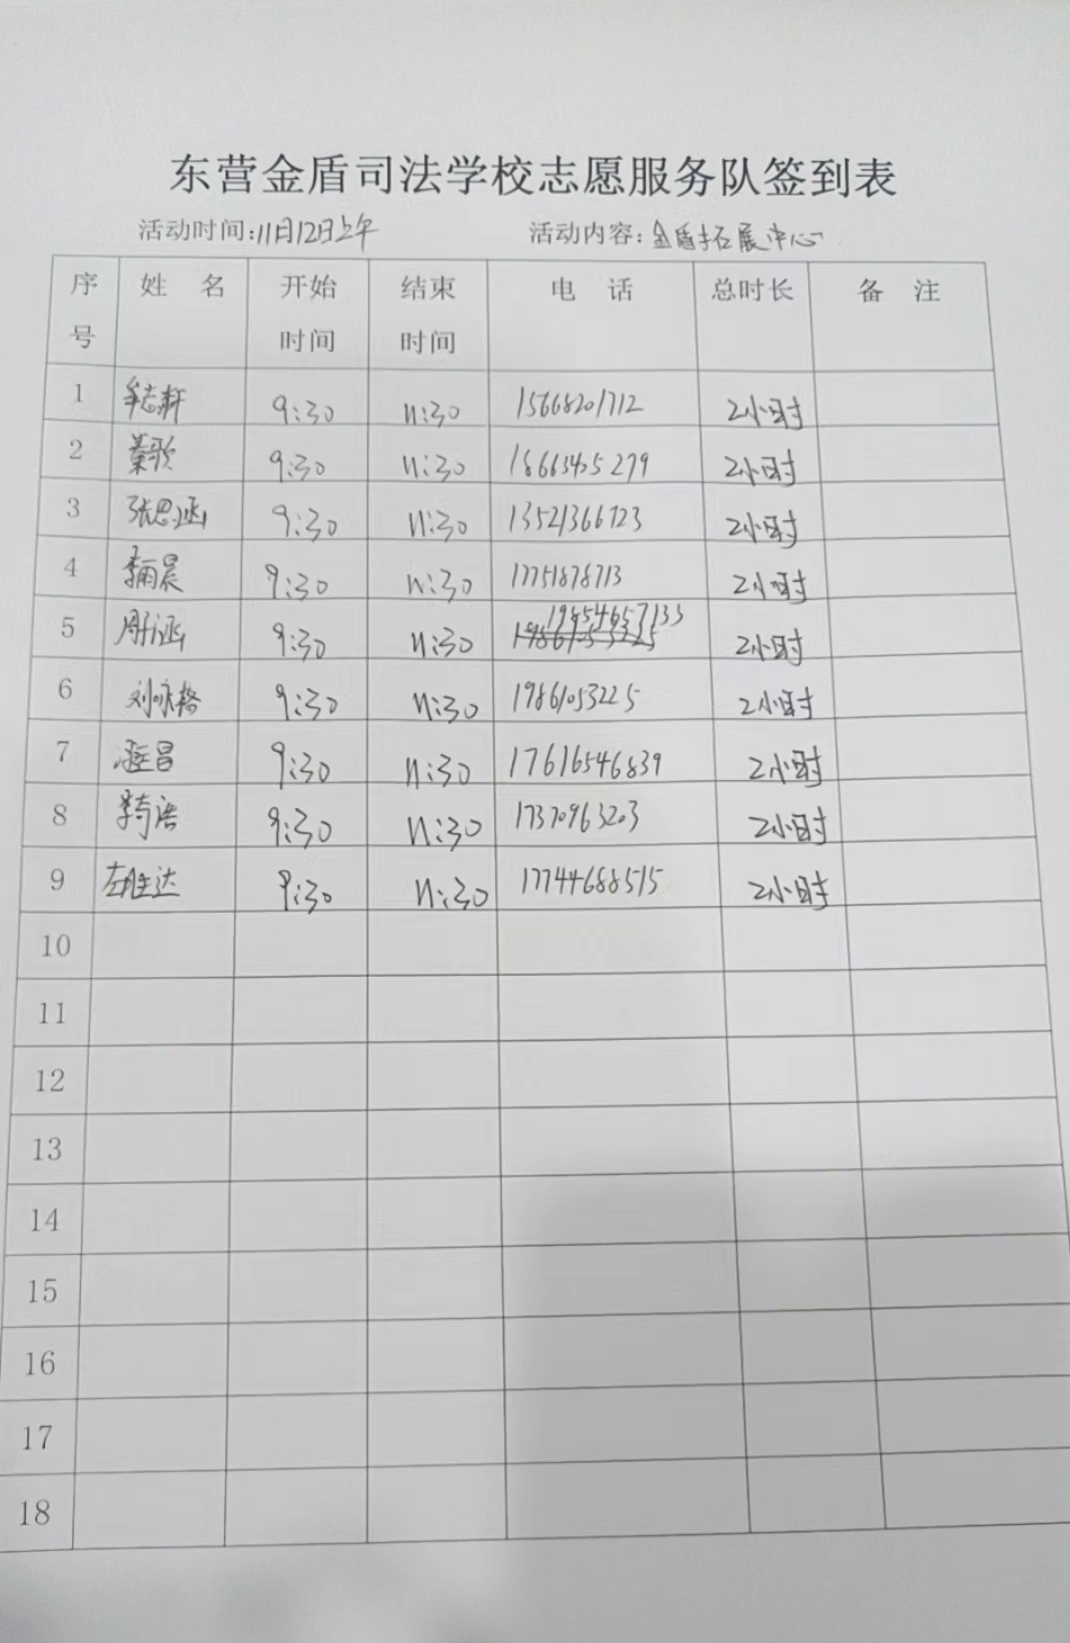 东营金盾司法学校志愿服务队签到表
活动时间:11月12日上午 活动内容:金盾拓展中心
序号 姓 名 开始时间 结束时间 电 话 总时长 备 注
1 牟志轩 9:30 11:30 15668201712 2小时
2 秦歌 9:30 11:30 18663405279 2小时
3 张思涵 9:30 11:30 13521366723 2小时
4 李雨晨 9:30 11:30 17751878713 2小时
5 9:30 11:30 19854657133 2小时
6 刘咏格 9:30 11:30 19861053225 2小时
7 9:30 11:30 17616546839 2小时
8 9:30 11:30 17370963203 2小时
9 左胜达 9:30 11:30 17744688515 2小时
10
11
12
13
14
15
16
17
18